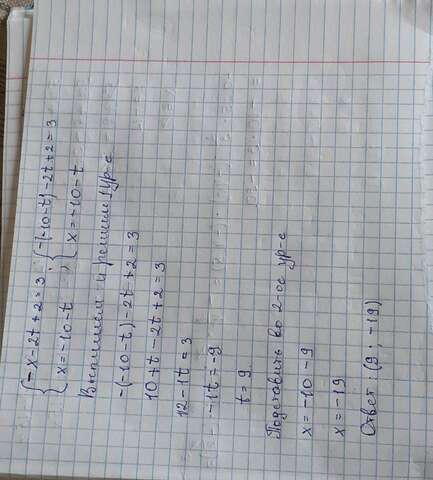 {-x-2t+2=3 ; {-(-10-t)-2t+2=3
{x=-10-t ; {x=-10-t
Выпишем и решим 1 ур-е
-(-10-t)-2t+2=3
10+t-2t+2=3
12-1t=3
-1t=-9
t=9
Подставить во 2-ое ур-е
x=-10-9
x=-19
Ответ: (9 ; -19)